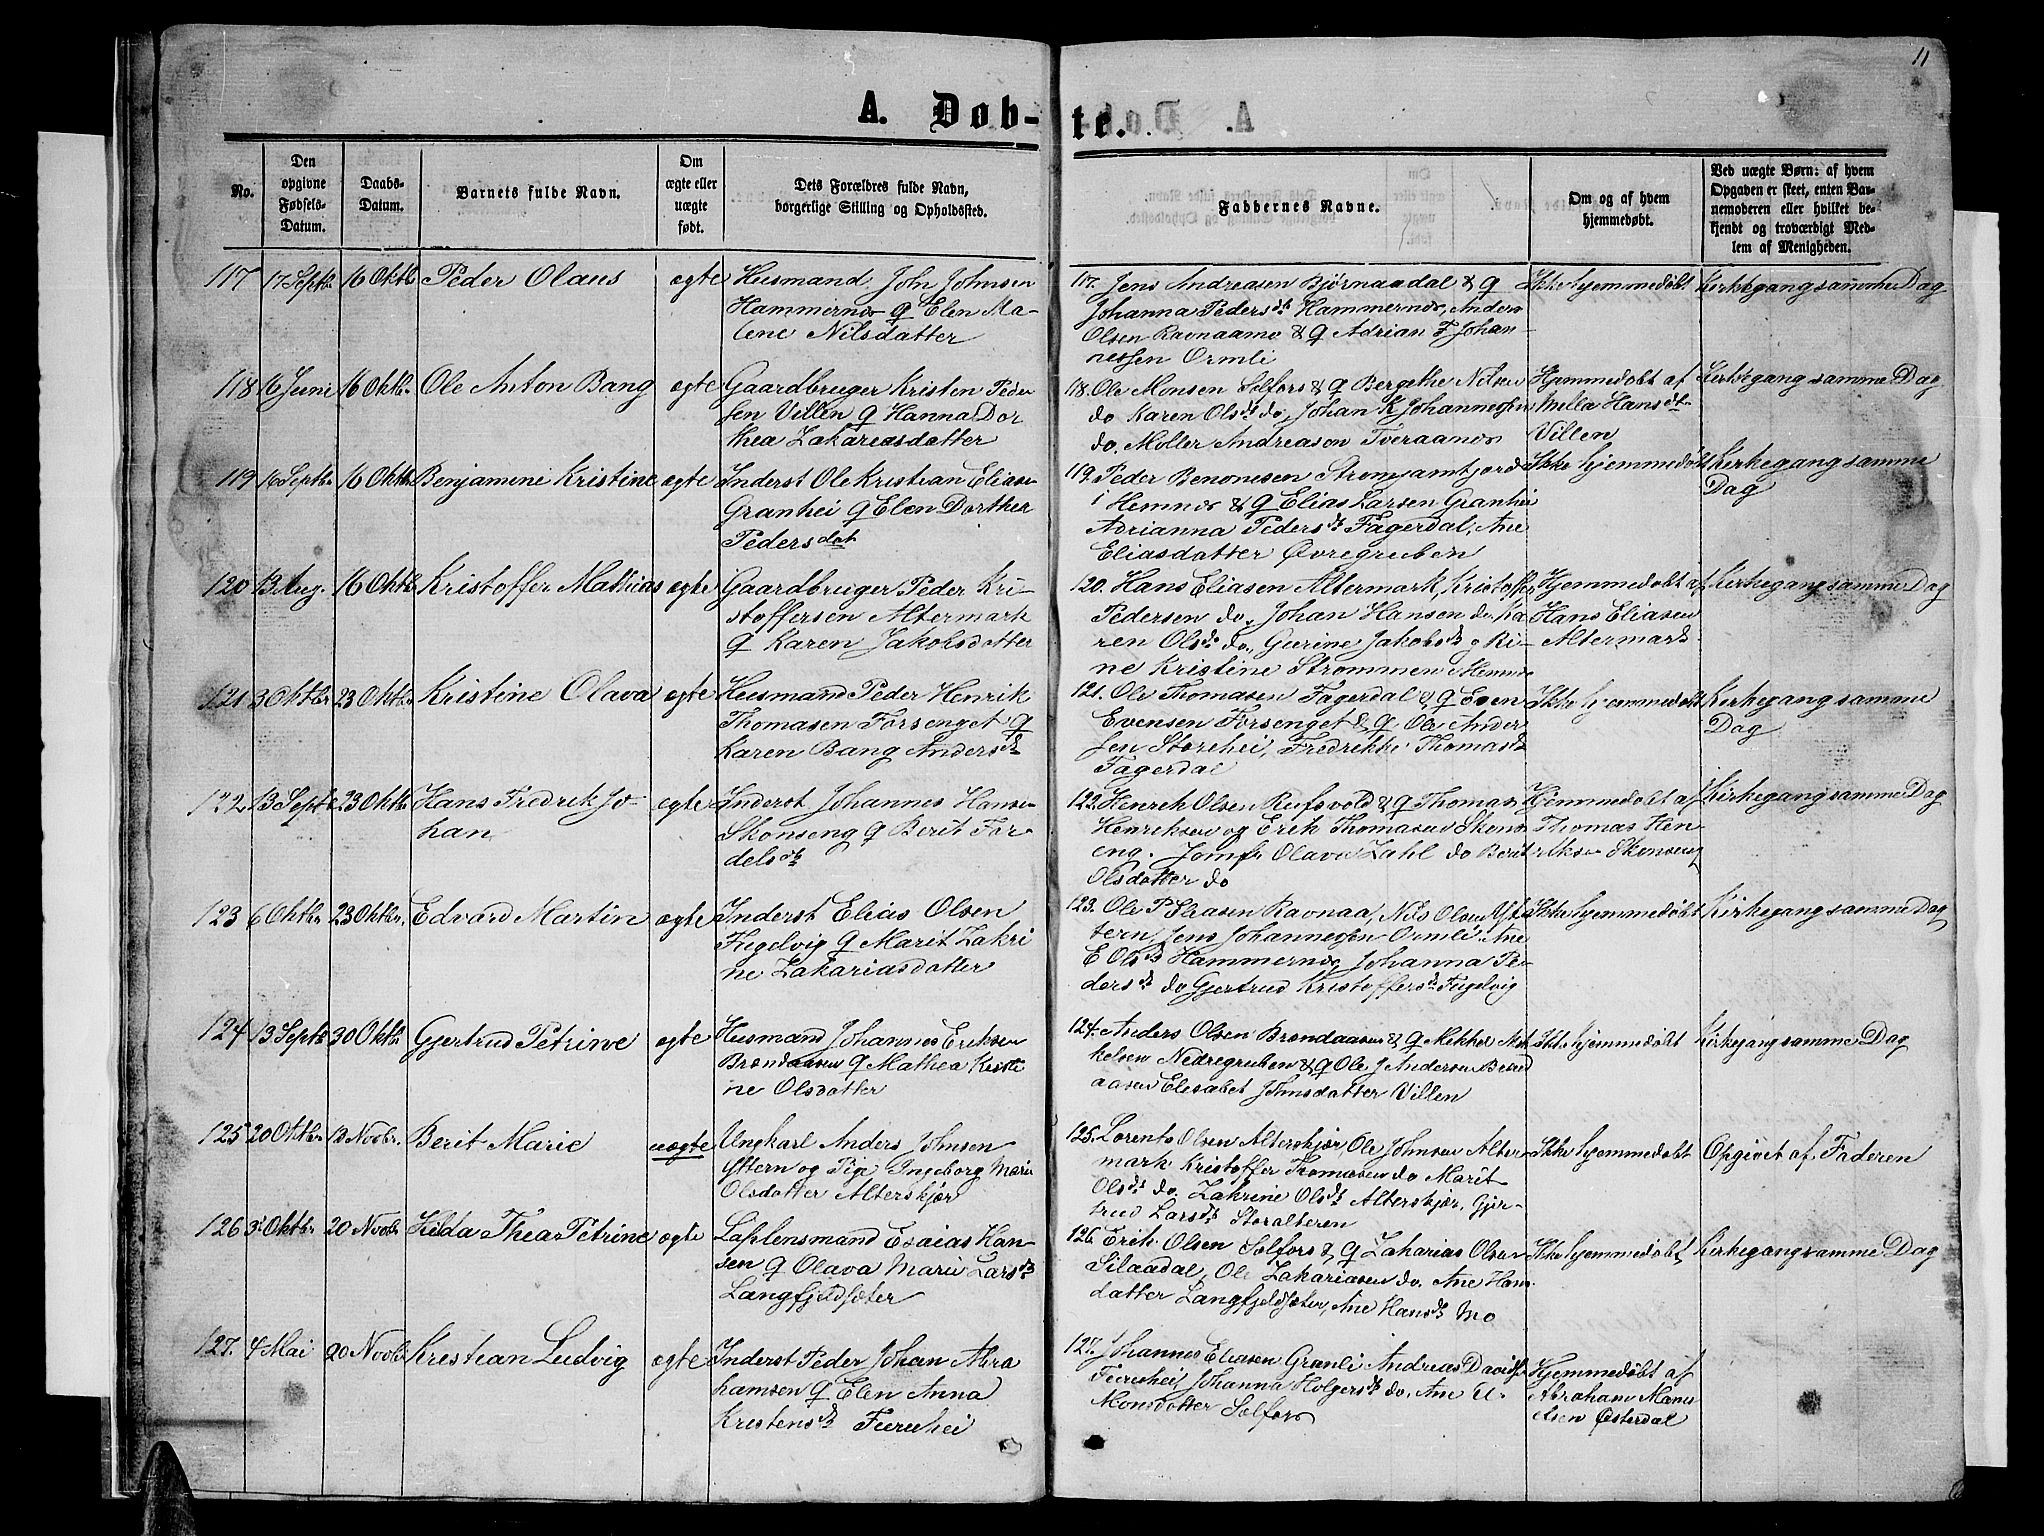 11
A. Døb-te.
No.
Den opgivne Fødsels-Datum.
Daabs-Datum.
Barnets fulde Navn.
Om ægte eller uægte født.
Dets Forældres fulde Navn, borgerlige Stilling og Opholdssted.
Faddernes Navne.
Om og af hvem hjemmedøbt.
Ved uægte Børn: af hvem Opgaven er skeet, enten Barnemoderen eller hvilket bekjendt og troværdigt Medlem af Menigheden.
117 17 Septbr 16 Oktbr Peder Olaus ægte Husmand John Johnsen
Hammernes & Elen Ma-
lene Nilsdatter
117. Jens Andreasen Bjørnaadal & Q
Johanna Pedersdt Hammernes, Anders
Olsen Ravnaamo & Q Adrian F Johan-
nessen Ormli
Ikke hjemmedøbt
Kirkegang samme Dag
118 16 Juni 16 Oktbr. Ole Anton Bang ægte Gaardbruger Kristen Peder
sen Villen Q Hanna Dor
thea Zakariasdatter
118. Ole Monsen Selfors & Q Bergethe Nilsen
do Karen Olsdt do, Johan K Johannessen
do. Møller Andreasen Tveraanes
Hjemmedøbt af
Milla Hansdt
Villen
Kirkegang samme Dag
119 16 Septbr 16 Oktbr Benjamine Kristine ægte Inderst Ole Kristian Eliasen
Granhei Q Elen Dorthea
Pedersdat
119. Peder Benonesen Stromsamtjord
i Hemnes & Q Elias Larsen Granhei
Adrianna Pedersdt Fagerdal, Ane
Eliasdatter Øvregruben
Ikke hjemmedøbt
Kirkegang samme
Dag
120 13 Aug. 16 Oktbr Kristoffer Mathias ægte Gaardbruger Peder Kri-
stoffersen Altermark
Q Karen Jakobsdatter
120. Hans Eliasen Altermark, Kristoffer
Pedersen do, Johan Hansen do Ka
ren Olsdt do, Gurine Jakobsdt
ne Kristine Strommen i Hemnes
Hjemmedøbt af
Hans Eliasen
Altermark
Kirkegang samme Dag
121 3 Oktbr 23 Oktbr. Kristine Olava ægte Husmand Peder Henrik
Thomasen Forsenget Q
Karen Bang Andersdt
121. Ole Thomasen Fagerdal & Q Even
Evensen Forsenget & Q Ole Ander
sen Storehei, Fredrikke Thomasdt
Fagerdal
Ikke hjemmedøbt
Kirkegang samme
Dag
122 13 Septbr 23 Oktbr Hans Fredrik Jo-
han
ægte Inderst Johannes Hansen
Skonseng Q Berit For
delsdt
122. Henrik Olsen Rufsvold & Q Thomas
Henriksen og Erik Thomasen Skons
eng. Jomfr Olava Zahl do Berit
Olsdatter do
Hjemmedøbt af
Thomas Hen
riksen Skonseng
Kirkegang samme Dag
123 6 Oktbr 23 Oktbr. Edvard Martin ægte Inderst Elias Olsen
Fugelvig Q Marit Zakri
ne Zakariasdatter
123. Ole P Eliasen Ravnaa, Nils Olsen Yt
tern Jens Johannessen Ormli Ane
E Olsdt Hammernes, Johanna Pe-
dersdt do Gjertrud Kristoffersdt Fugelvig
Ikke hjemmedøbt
Kirkegang samme Dag
124 13 Septbr 30 Oktbr Gjertrud Petrine ægte Husmand Johannes Eriksen
Brendaasen Q Mathea Kristi
ne Olsdatter
124. Anders Olsen Brendaasen & Q Mekkel Mek
kelsen Nedregruben & Q Ole J Andersen Brend
aasen Elisabet Johnsdatter Villen
Ikke hjemmedøbt
Kirkegang samme Dag
125 20 Oktbr. 13 Novbr. Berit Marie uægte Ungkarl Anders Johnsen
Yttern og Pige Ingeborg Marie
Olsdatter Alterskjær
125. Lorents Olsen Alterskjær, Ole Johnsen Alter
mark Kristoffer Thomasen do Marit
Olsdt do, Zakrine Olsdt Alterskjær, Gjer-
trud Larsdt Storalteren
Ikke hjemmedøbt
Opgivet af Faderen
126 31 Oktbr 20 Novbr Hilda Thea Petrine ægte Laplensmand Esaias Han-
sen Q Olava Marie Larsdt
Langfjeldsæter
126. Erik Olsen Selfors & Q Zakarias Olsen
Silaadal, Ole Zakariasen do, Ane Hans
datter Langfjeldsæter, Ane Hansdt Mo
Ikke hjemmedøbt
Kirkegang samme Dag
127. 4 Mai 20 Novbr Kristian Ludvig ægte Inderst Peder Johan Abra
hamsen Q Elen Anna
Kristensdt Furuhei
127. Johannes Eliasen Granli Andreas Davids
Furuhei, Johanna Holgersdt do, Ane U-
Monsdatter Selfors
Hjemmedøbt af
Abraham
Østerdal